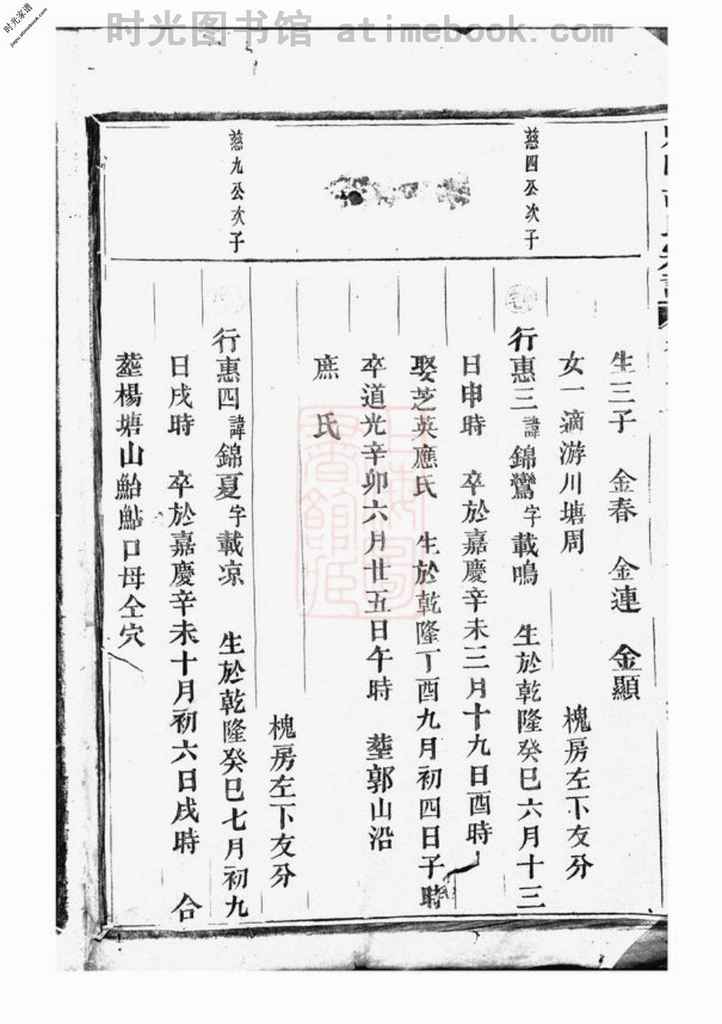 时光图书馆 - atimebook.com
时光家谱
慈四公次子
慈九公次子
生三子　金春　金連　金顯
女一適游川塘周　槐房左下友分
行惠三諱錦鸞字載鳴　生於乾隆癸巳六月十三
日申時　卒於嘉慶辛未三月十九日酉時
娶芝英應氏　生於乾隆丁酉九月初四日子時
卒道光辛卯六月廿五日午時　塟郭山沿
庶氏
槐房左下友分
行惠四諱錦夏字載凉　生於乾隆癸巳七月初九
日戌時　卒於嘉慶辛未十月初六日戌時　合
塟楊塘山鮐鮎口母仝穴